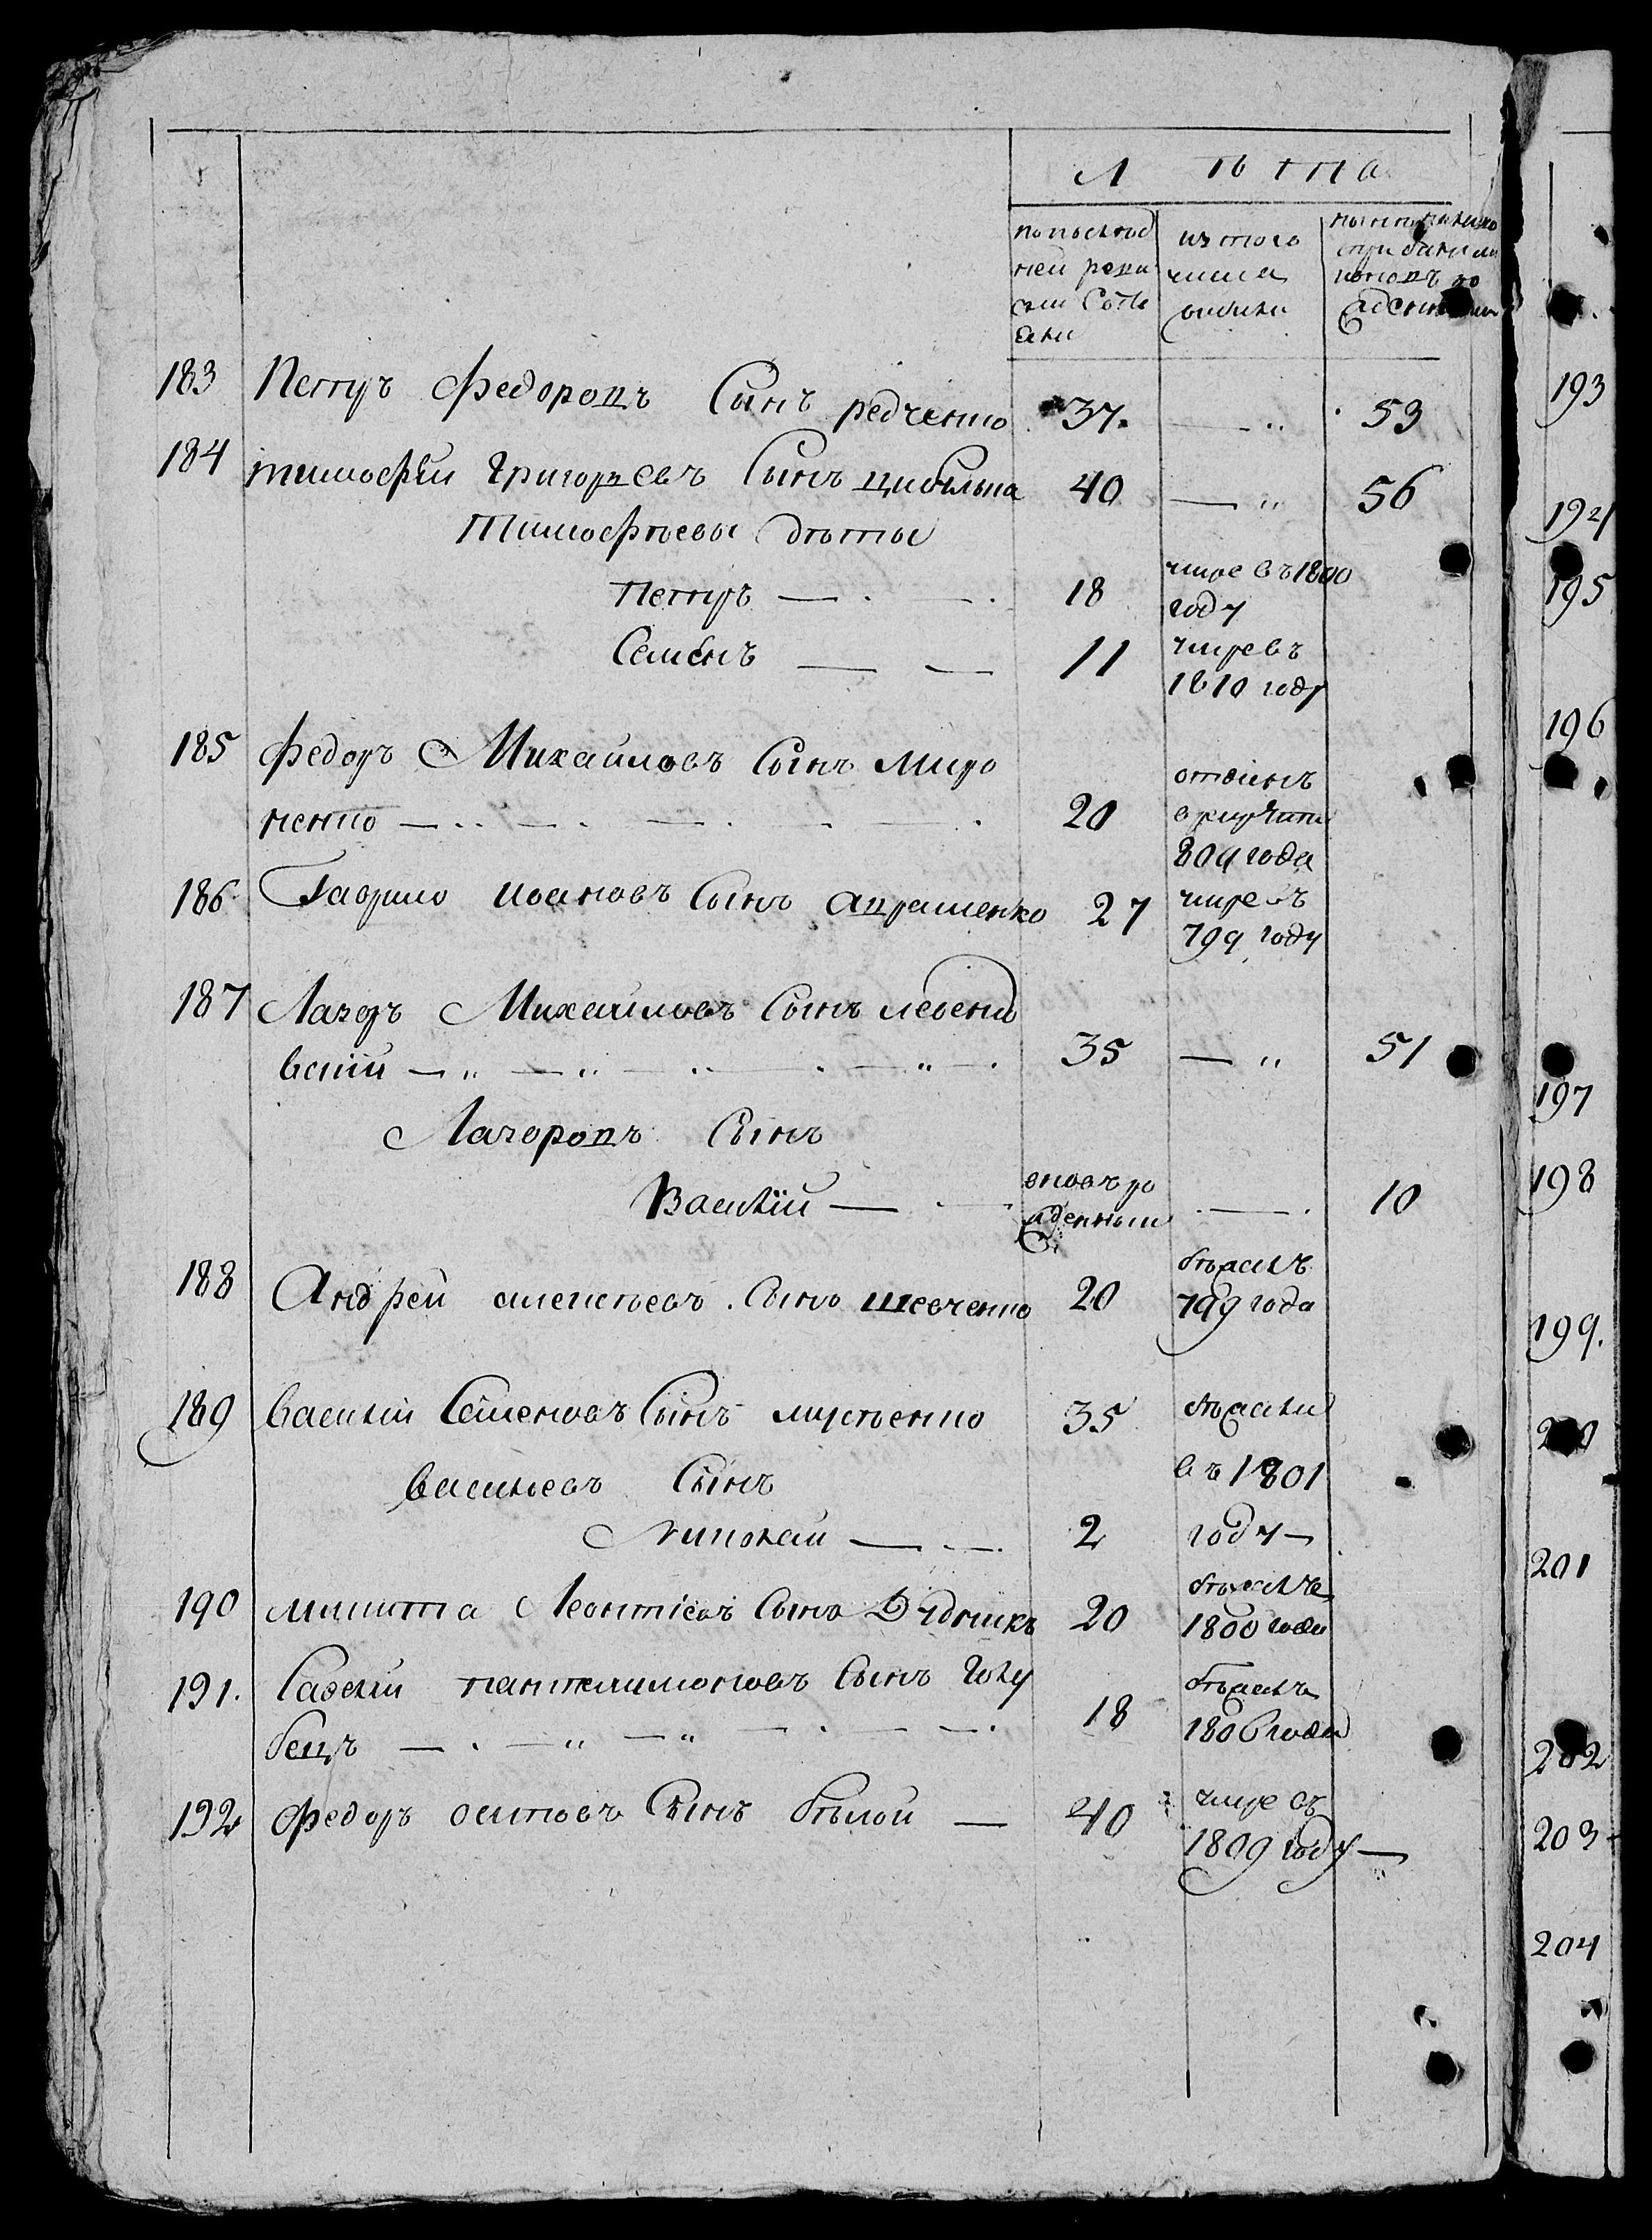 Лѣта
по послѣд
ней реви
зіи состо
яли
изъ того
числа
выбили
183 Петръ Федоровъ Сынъ редченко 37. — 53
184 тимофѣй Григорьевъ Сынъ цибулька 40 — 56
Тимофѣевы дѣти
Петръ — 18 умре въ 1800
году
Семенъ — 11 умре въ
1810 году
185 Федоръ Михайловъ Сынъ миро
ненко — 20 отданъ
в рекруты
804 года
186 Гаврило ивановъ Сынъ авраменко 27 умре въ
799 году
187 Лазоръ Михайловъ Сынъ
вскій — 35 — 51
Лазоровъ Сынъ
Василій — вновь ро
жденный — 10
188 Андрей алексѣевъ Сынъ шевченко 20 бѣжалъ
799 года
189 Василій Семеновъ Сынъ 35 бѣжали
васильевъ Сынъ въ 1801
Николай — 2 году —
190 микита Леонтіевъ Сынъ Дудникъ 20 бѣжалъ
1800 года
191. Савелій пантелимоновъ Сынъ Голу
бецъ — 18 бѣжалъ
1806 года
192 Федоръ осиповъ Сынъ бѣлой — 40 умре въ
1809 году —
193
194
195
196
197
198
199.
200
201
202
203
204